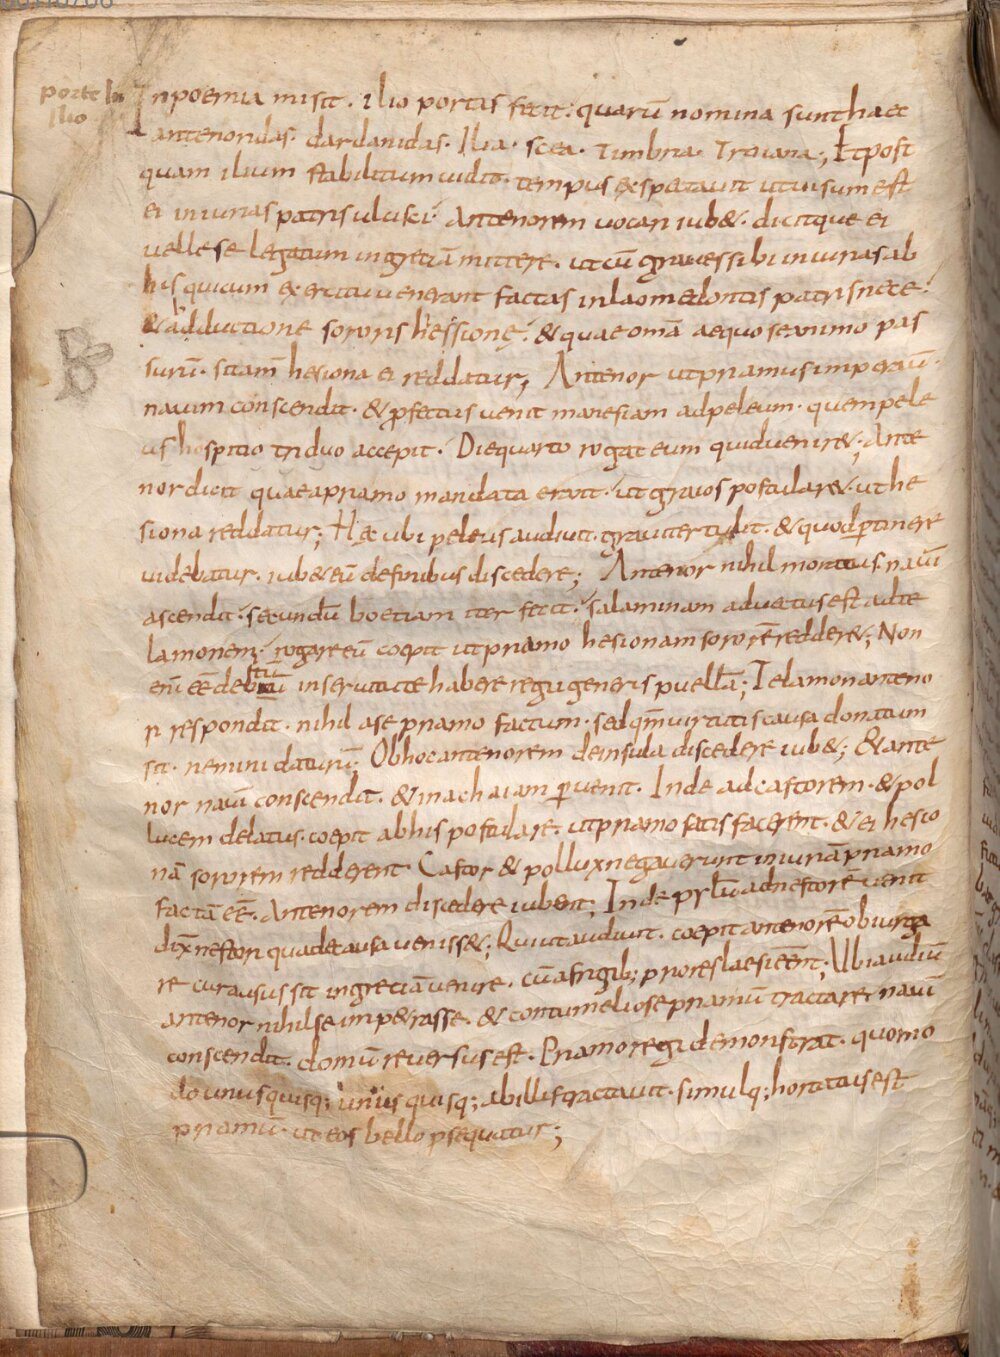 porte In
Ilio
In poemia misit. ilio portas fecit: quarū nomina sunt haec
antenoridas. dardanidas. Ilia. scea. timbria. troiana; Et post
quam ilium stabilitum uidit. tempus exspectauit ut uisum est
ei iniurias patris ulcisci. Antenorem uocari iub&. dicitque ei
uelle se legatum in greciā mittere. ut cū graues sibi iniurias ab
his qui cum exercitu uenerant factas in laomedontis patris nece.
& adductione sororis hessionę. & quae omā aequo se animo pas
surū. si tam̄ hesiona ei reddatur; Antenor ut priamus imperauit.
nauim conscendit. & profectus uenit manesiam ad peleum. quem pele
us hospitio triduo accepit. Die quarto rogat eum quid uenir&; Ante
nor dicit quae a priamo mandata erant. ut graios postular&. ut he
siona reddatur; Hęc ubi peleus audiuit. grauiter tulit. & quod ptinere
uidebatur. iub& eū de finibus discedere; Antenor nihil moratus. nauī
ascendit. secundū boetiam iter fecit. salaminam aduectus est ad te
lamonem. rogare eū coepit ut priamo hesionam sororē redder&; Non
enī eē iustū in seruitute habere regii generis puellā; Telamon anteno
ri respondit. nihil a se priamo factum. sed qm̄ uirtutis causa donatum
sit. nemini daturū. Ob hoc antenorem de insula discedere iub&; & ante
nor nauī conscendit. & in achaiam puenit. Inde ad castorem. & pol
lucem delatus. coepit ab his postulare. ut priamo satisfacerent. & ei hesio
nā sororem redderent. Castor & pollux negauerunt iniuriā priamo
factā eē. Antenorem discedere iubent; Inde pylū ad nestorē uenit
dix̄ nestori qua de causa ueniss&; Qui ut audiuit. coepit antenorē obiurga
re cur ausus sit in greciā uenire. cū a frigib; priores laesi eēnt; Ubi audiuī
antenor nihil se imp&rasse. & contumeliose priamū tractare. nauī
conscendit. domū reuersus est. Priamo regi demonstrat. quomo
do unusquisq; unusquisq; ab illis tractauit. simulq; hortatus est
priamū. ut eos bello psequatur;